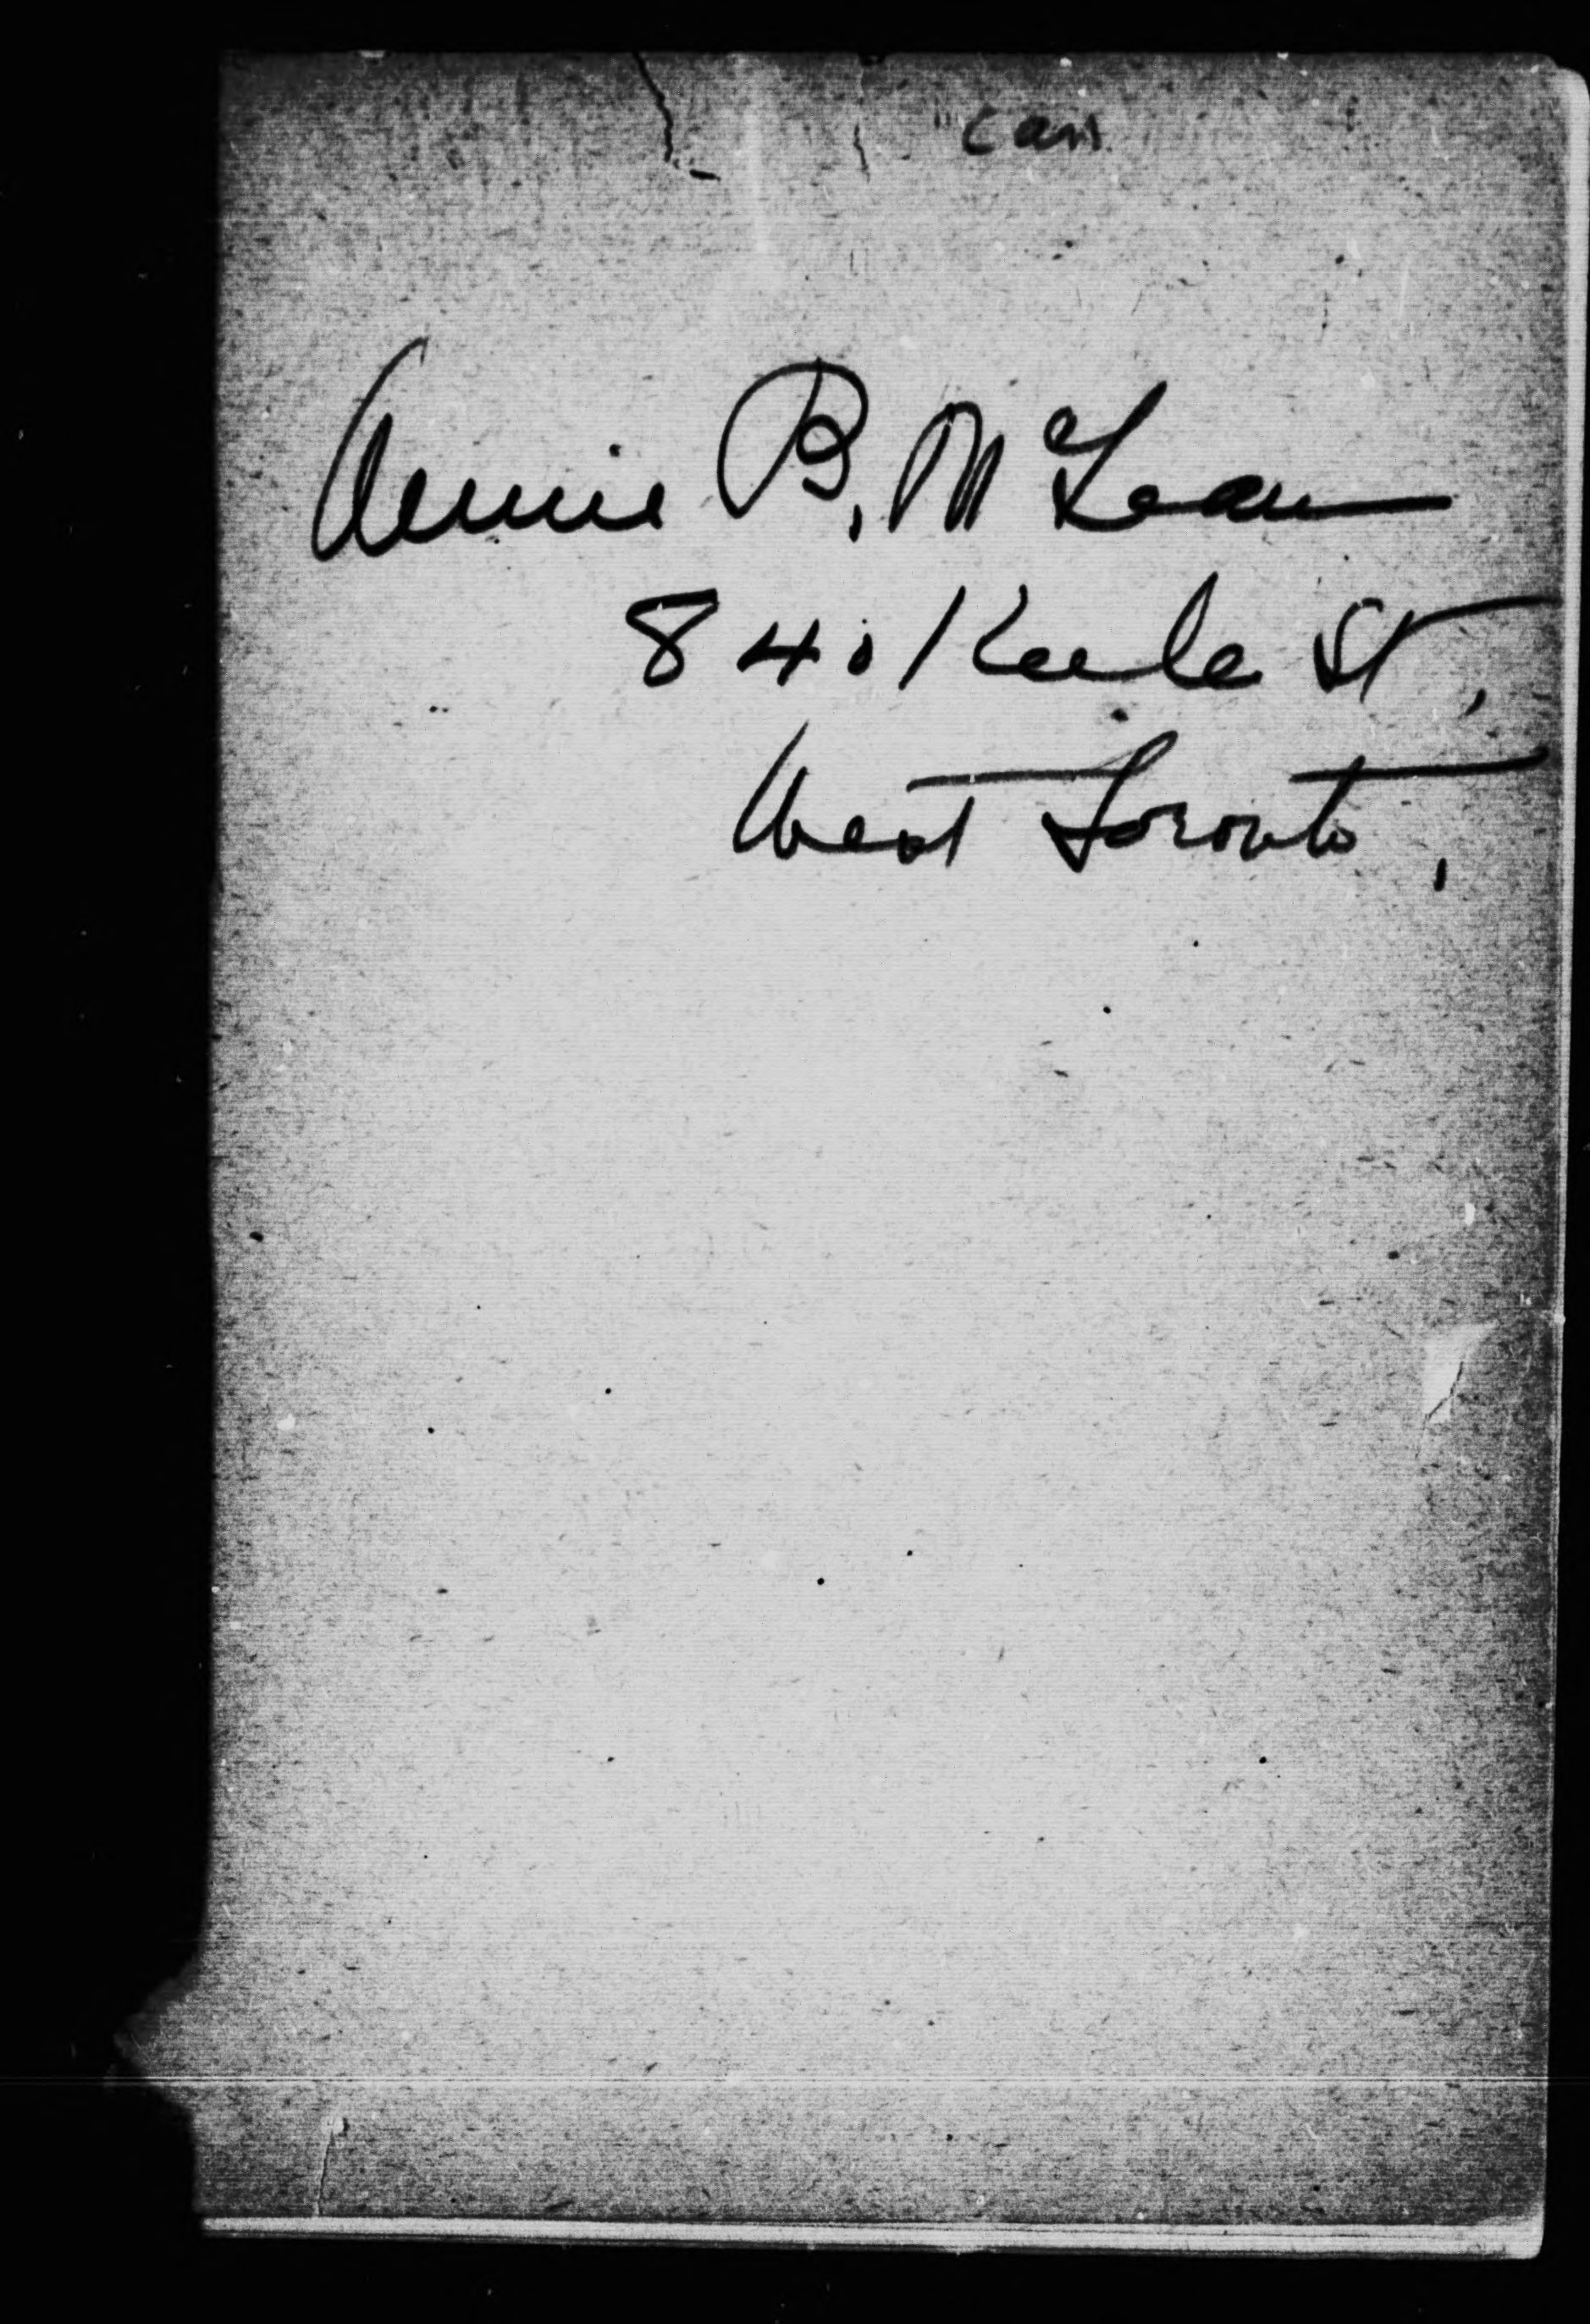 can
Annie B. McLean
840 Keele St.,
West Toronto,